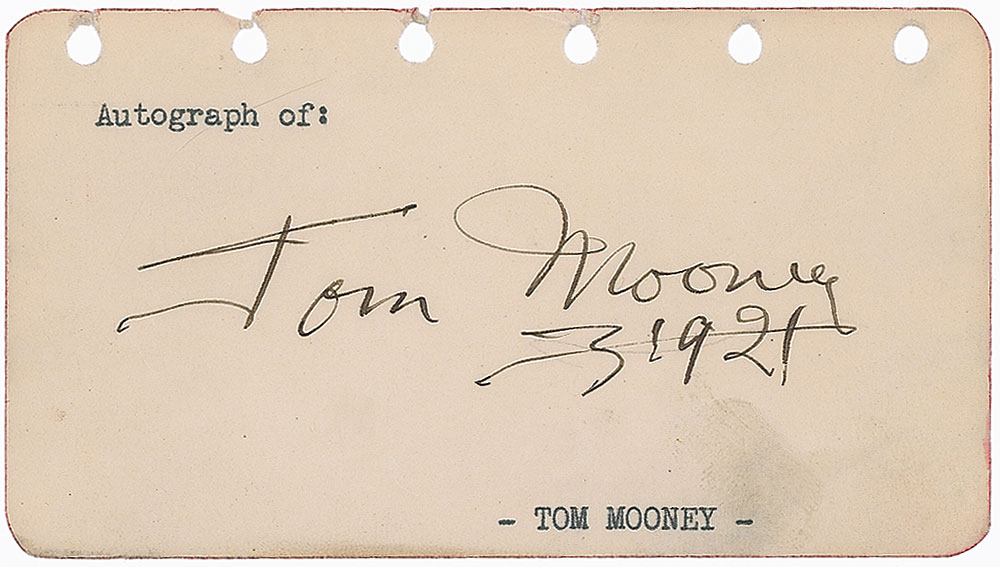 Autograph of:
Tom Mooney
31921
- TOM MOONEY -